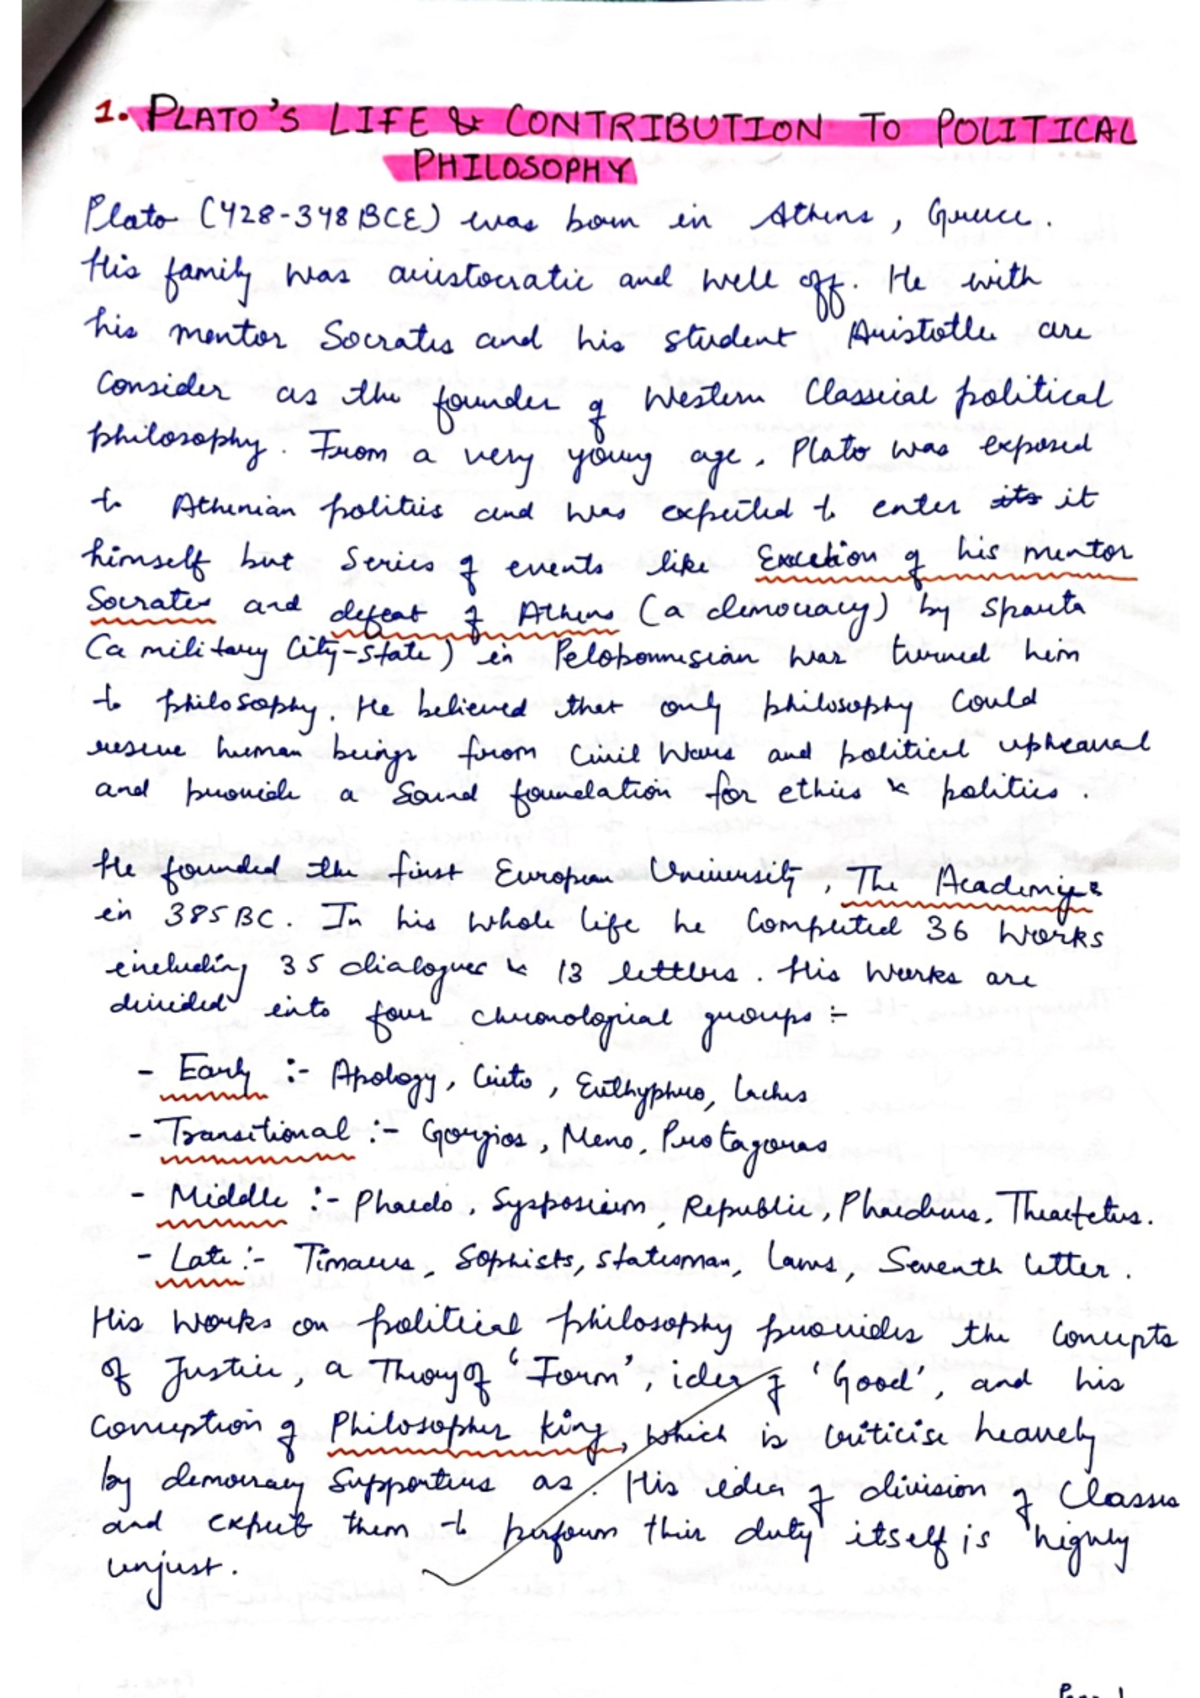 1. PLATO'S LIFE & CONTRIBUTION TO POLITICAL
PHILOSOPHY
Plato (428-348 BCE) was born in Athens, Greece.
His family was aristocratic and well off. He with
his mentor Socrates and his student Aristotle are
Consider as the founder of Western Classical political
philosophy. From a very young age, Plato was exposed
to Athenian politics and was expected to enter its it
himself but Series of events like Excetion of his mentor
Socrates and defeat of Athens (a democracy) by Sparta
(a military City-state) in Peloponnesian War turned him
to philosophy. He believed that only philosophy Could
rescue human beings from Civil Wars and political upheaval
and provide a Sound foundation for ethics & politics.
He founded the first European University, The Academy
in 385 BC. In his whole life he Completed 36 Works
including 35 dialogues & 13 letters. His Works are
divided into four chronological groups :-
- Early :- Apology, Crito, Euthyphro, Laches
- Transitional :- Gorgios, Meno, Protagoras
- Middle :- Phaedo, Sysposium, Republic, Phaedrus, Theaetetus.
- Late :- Timaeus, Sophists, Statesman, Laws, Seventh letter.
His Works on political philosophy provides the Concepts
of Justice, a Theory of 'Form', idea of 'Good', and his
Conception of Philosopher King, which is criticise heavely
by democracy Supporters as. His idea of division of Classes
and expect them to perform their duty itself is highly
unjust.
Page 1